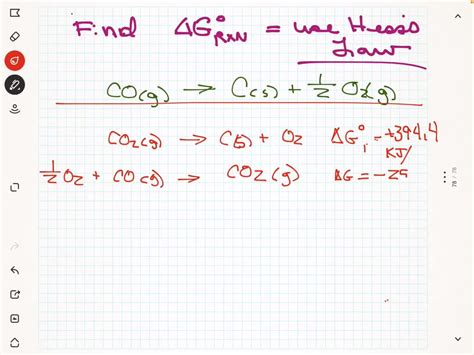 Find ΔG°RXN = use Hess's Law
CO(g) → C(s) + 1/2 O2(g)
CO2(g) → C(s) + O2 ΔG°1 = +394.4 KJ/
1/2 O2 + CO(g) → CO2(g) ΔG = -25
78 / 78